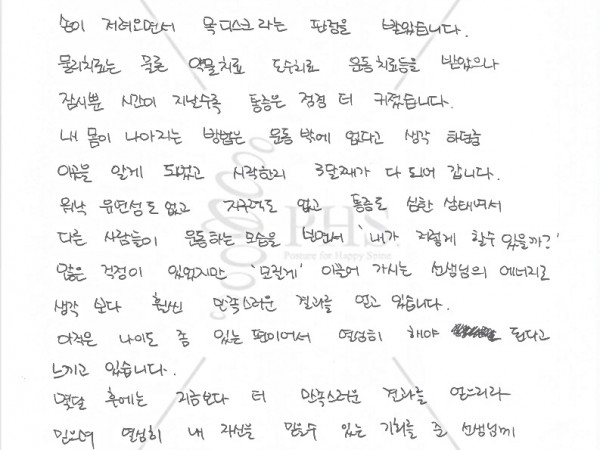 손이 저려오면서 목디스크라는 판정을 받았습니다.
물리치료는 물론 약물치료 도수치료 운동치료등을 받았으나
잠시뿐 시간이 지날수록 통증은 점점 더 커졌습니다.
내 몸이 나아지는 방법은 운동 밖에 없다고 생각 하던중
이곳을 알게 되었고 시작한지 3달째가 다 되어 갑니다.
워낙 유연성도 없고 지구력도 없고 통증도 심한 상태여서
다른 사람들이 운동하는 모습을 보면서 '내가 저렇게 할수 있을까?'
많은 걱정이 있었지만 '모질게' 이끌어 가시는 선생님의 에너지로
생각 보다 훨씬 만족스러운 결과를 얻고 있습니다.
아직은 나이도 좀 있는 편이어서 열심히 해야 된다고
느끼고 있습니다.
몇달 후에는 지금보다 더 만족스러운 결과를 얻으리라
믿으며 열심히 내 자신을 믿을수 있는 기회를 준 선생님께
PHS
Posture for Happy Spine